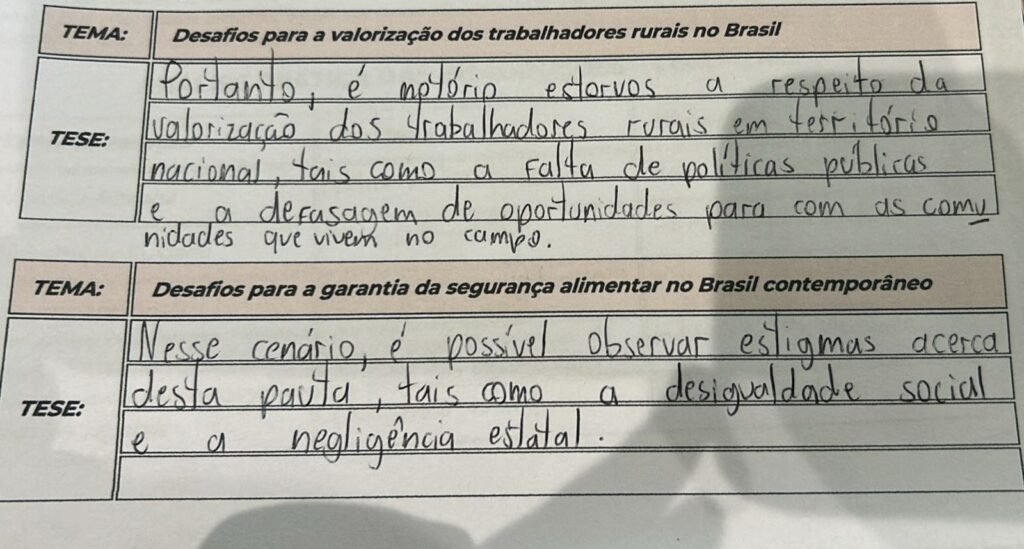 TEMA: Desafios para a valorização dos trabalhadores rurais no Brasil
TESE:
Portanto, é notório estorvos a respeito da
valorização dos trabalhadores rurais em território
nacional, tais como a falta de políticas públicas
e a defasagem de oportunidades para com as comu
nidades que vivem no campo.
TEMA: Desafios para a garantia da segurança alimentar no Brasil contemporâneo
TESE:
Nesse cenário, é possível observar estigmas acerca
desta pauta, tais como a desigualdade social
e a negligência estatal.